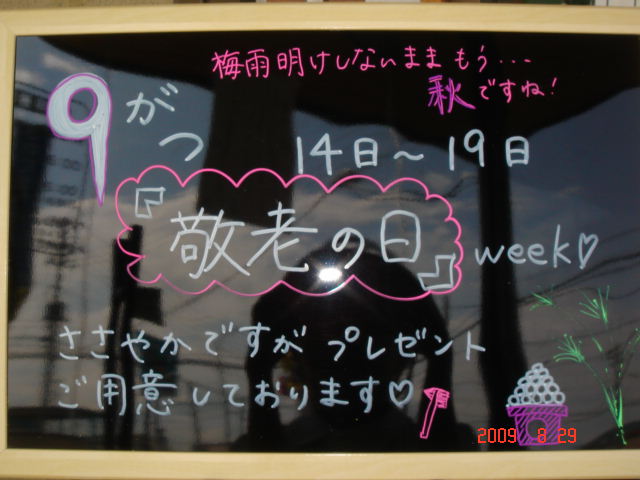 梅雨明けしないまま もう・・・
秋ですね!
9がつ 14日～19日
『敬老の日』 week♡
ささやかですが プレゼント
ご用意しております♡
2009 8 29